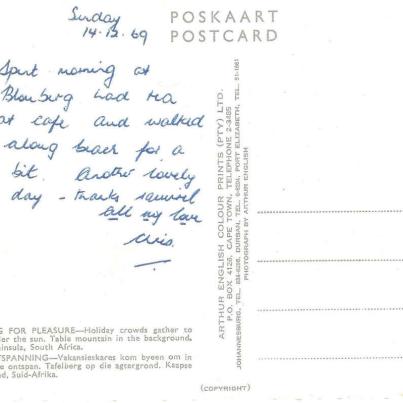 Sunday
14.12.69
POSKAART
POSTCARD
Spent morning at
Blouberg had tea
at cafe and walked
along beach for a
bit. Another lovely
day - thanks
all my love
Chris.
ARTHUR ENGLISH COLOUR PRINTS (PTY) LTD.
P.O. BOX 4126, CAPE TOWN, TELEPHONE 2-3485
JOHANNESBURG, TEL. DURBAN, TEL. PORT ELIZABETH, TEL. 51-1661
PHOTOGRAPH BY ARTHUR ENGLISH
G FOR PLEASURE—Holiday crowds gather to
er the sun. Table mountain in the background,
ninsula, South Africa.
TSPANNING—Vakansieskares kom byeen om in
e ontspan. Tafelberg op die agtergrond. Kaapse
d, Suid-Afrika.
(COPYRIGHT)